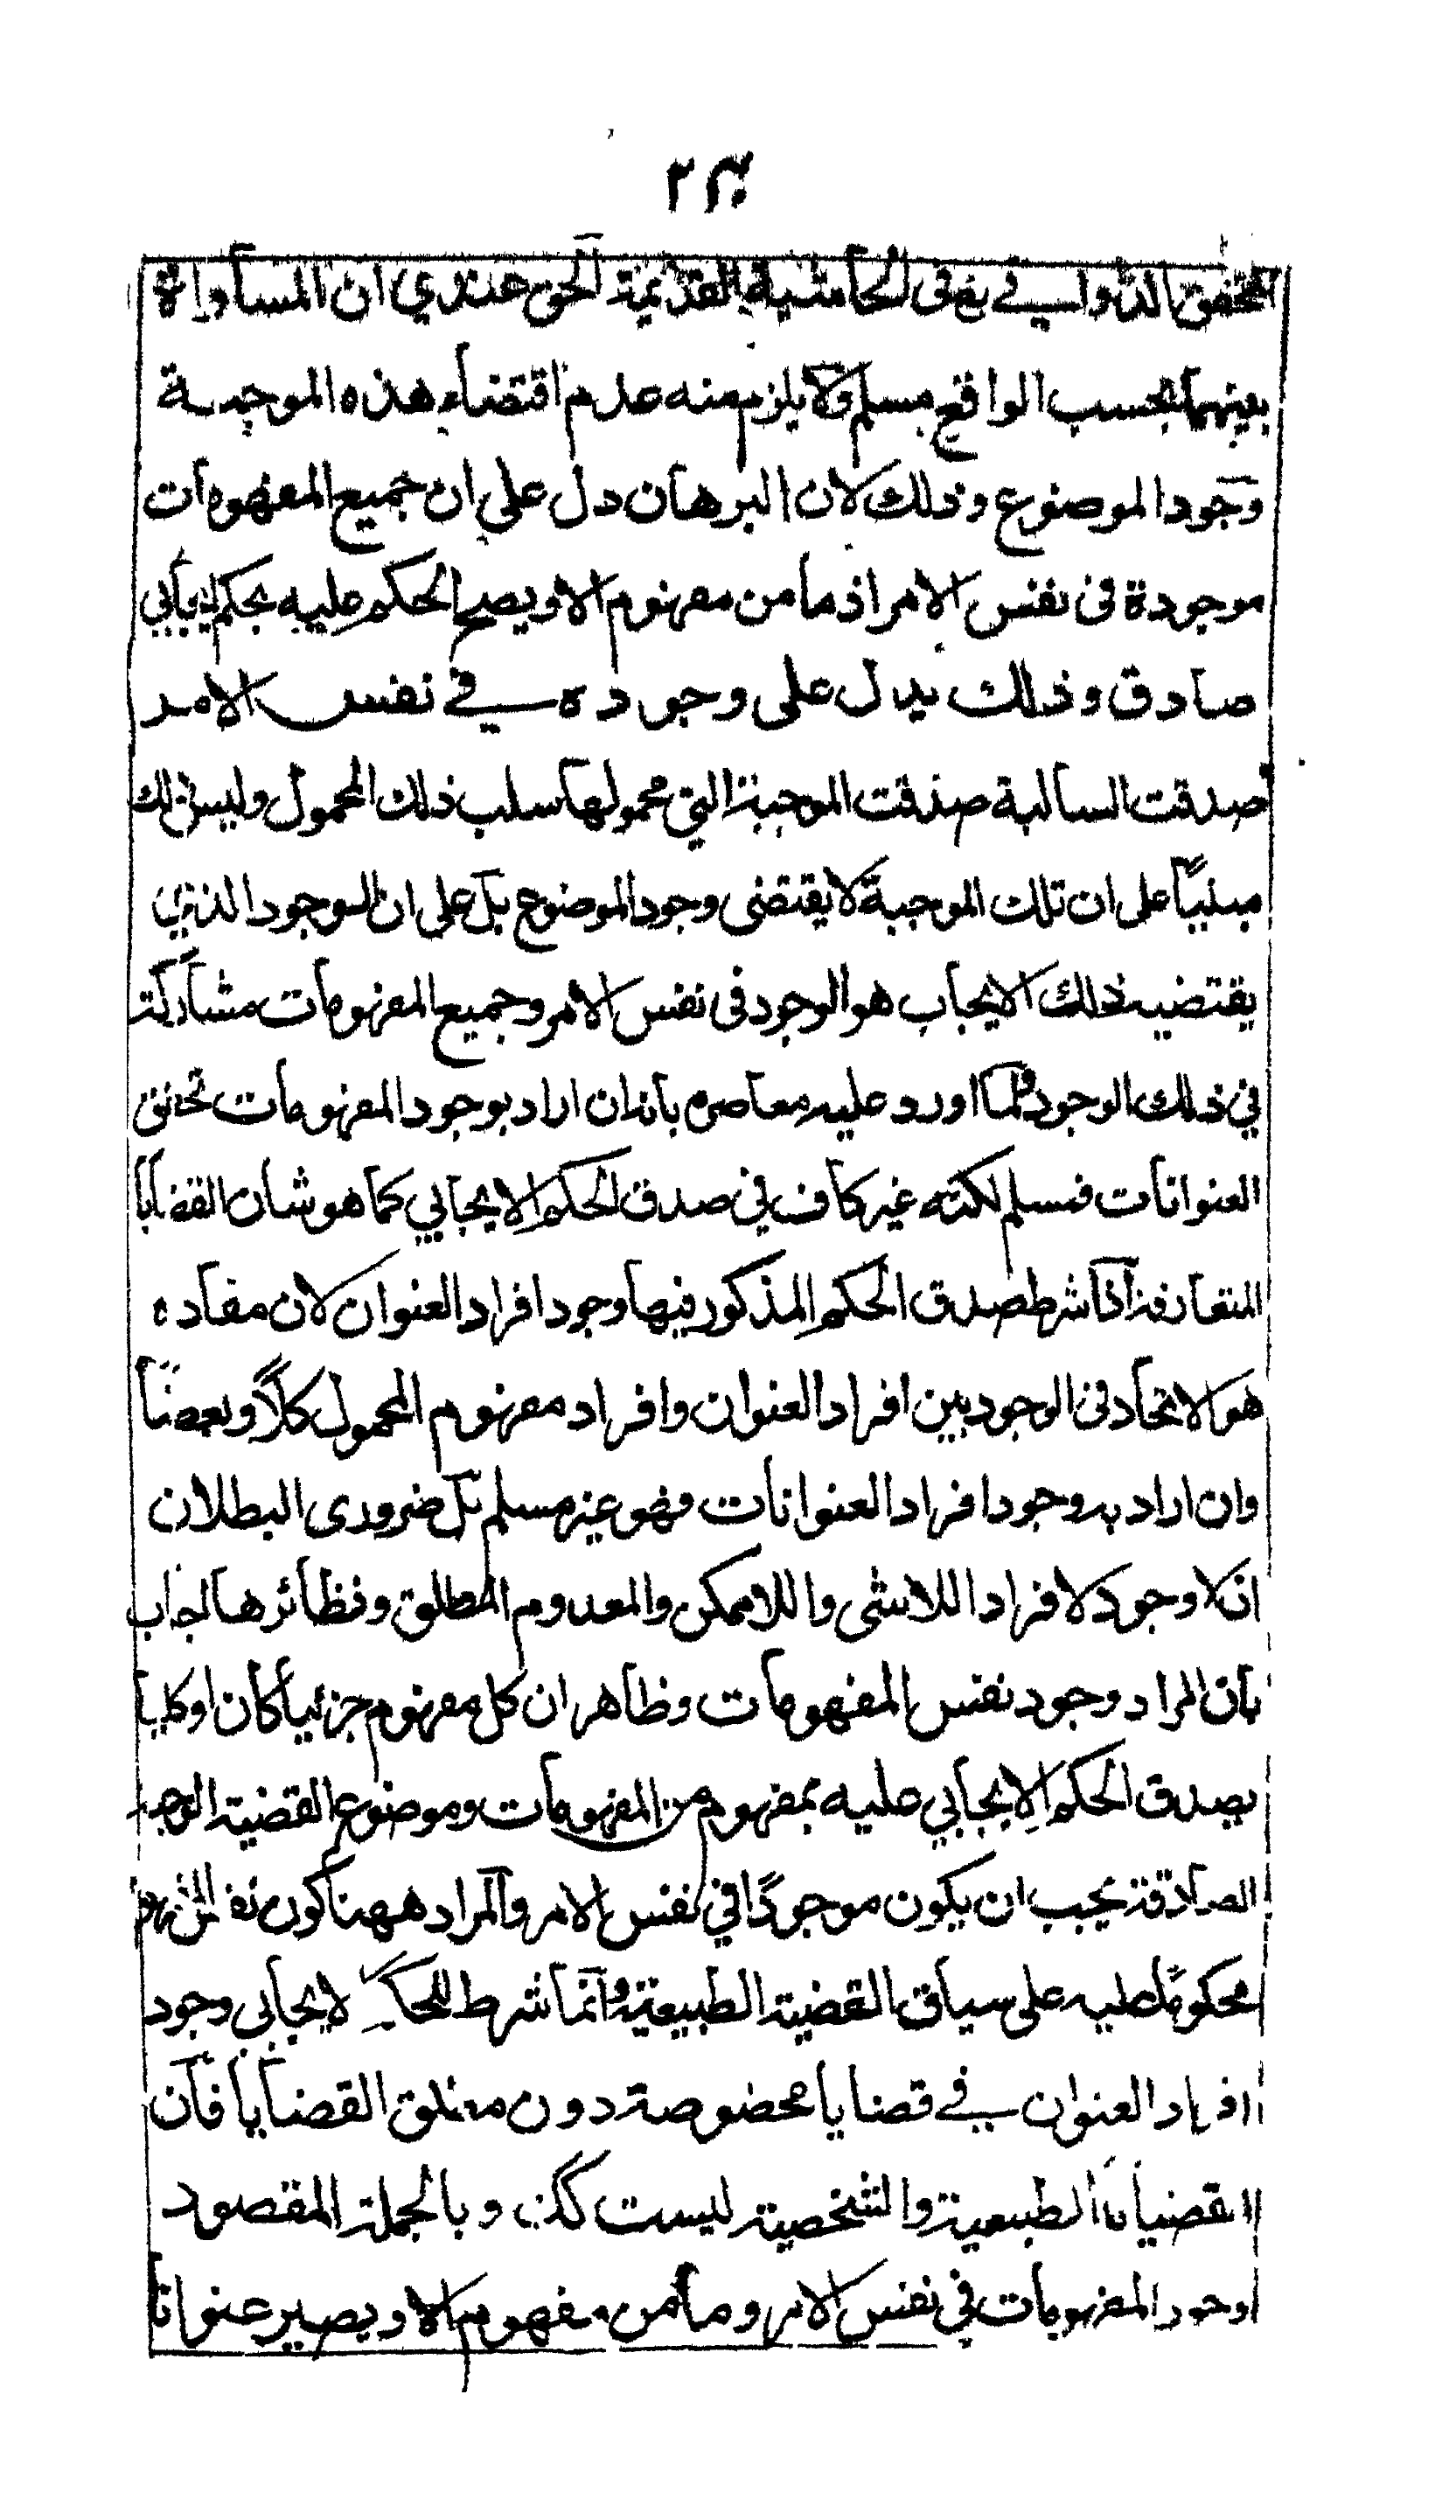 ٢٣
المحقق الدواني في الحاشية القديمة الحق عندي ان المساواة
بينهما بحسب الواقع مسلم ولا يلزم منه عدم اقتضاء هذه الموجبة
وجود الموضوع وذلك لان البرهان دل على ان جميع المفهومات
موجودة في نفس الامر اذ ما من مفهوم الا ويصح الحكم عليه بحكم ايجابي
صادق وذلك يدل على وجوده في نفس الامر
صدقت السالبة صدقت الموجبة التي محمولها سلب ذلك المحمول وليس ذلك
مبنيا على ان تلك الموجبة لا يقتضى وجود الموضوع بل على ان الوجود الذي
يقتضيه ذلك الايجاب هو الوجود في نفس الامر وجميع المفهومات مشاركة
في ذلك الوجود ولما اورد عليه معاصره بانه ان اراد بوجود المفهومات تحقق
العنوانات فمسلم لكنه غير كاف في صدق الحكم الايجابي كما هو شان القضايا
المتعارفة اذا شرط صدق الحكم المذكور فيها وجود افراد العنوان لان مفاده
هو الاتحاد في الوجود بين افراد العنوان وافراد مفهوم المحمول كلاً وبعضاً
وان اراد به وجود افراد العنوانات فهو غير مسلم بل ضروري البطلان
اذ لا وجود لافراد اللاشى واللاممكن والمعدوم المطلق ونظائرها اجاب
بان المراد وجود نفس المفهومات وظاهر ان كل مفهوم جزئياً كان او كلياً
يصدق الحكم الايجابي عليه بمفهوم من المفهومات وموضوع القضية الموجبة
الصادقة يجب ان يكون موجودًا في نفس الامر والمراد ههنا كون نفس المفهوم
محكوماً عليه على سياق القضية الطبيعية وانما شرط للحكم الايجابي وجود
افراد العنوان في قضايا مخصوصة دون مطلق القضايا فان
القضايا الطبيعية والشخصية ليست كذ وبالجملة المقصود
وجود المفهومات في نفس الامر وما من مفهوم الا ويصير عنوانا